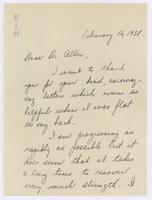 February 16, 1938
Dear Dr. Allen,
I want to thank
you for your kind, encourag-
ing letters which were so
helpful when I was flat
on my back.
I am progressing as
rapidly as possible but it
does seem that it takes
a long time to recover
very much strength. I